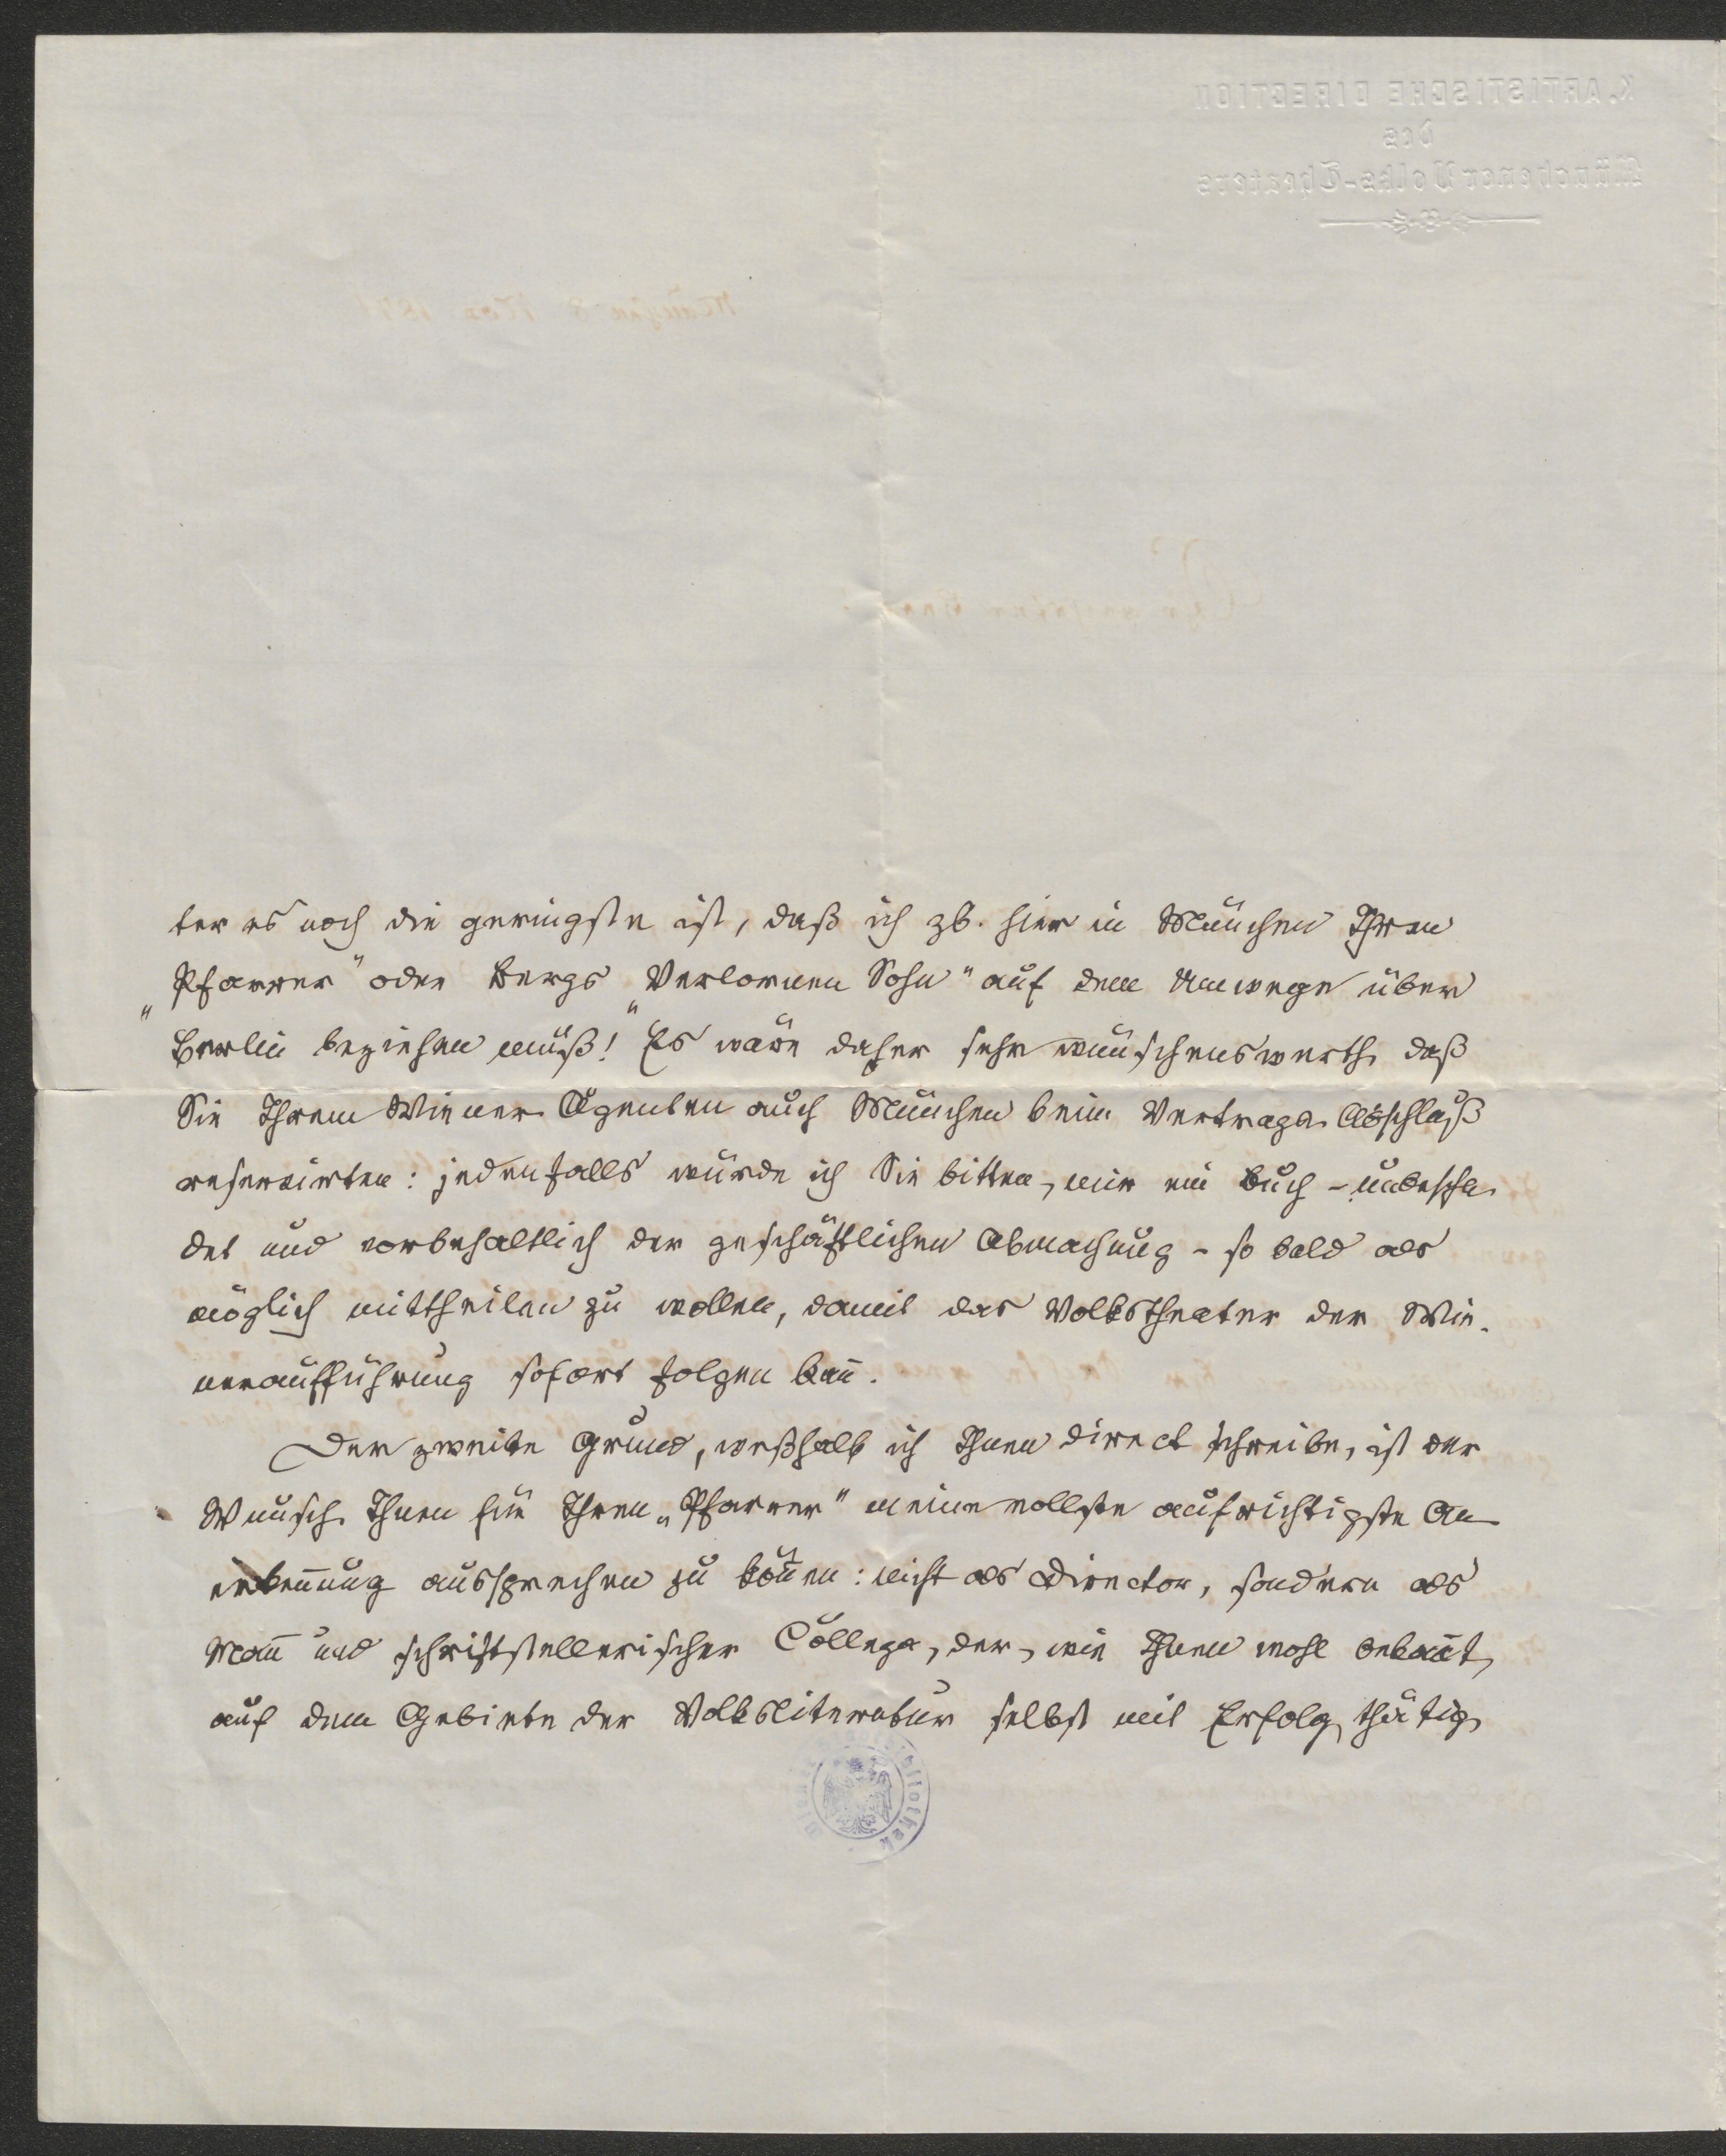 K. ARTISTISCHE DIRECTION
des
Münchener Volks-Theaters
ter es noch die geringste ist, daß ich zb. hier in München Ihren
„Pfarrer" oder Bergs „Verlornen Sohn" auf dem Umwege über
Berlin beziehen muß! Es wäre daher sehr wünschenswerth, daß
Sie Ihrem Wiener Agenten auch München beim Vertrags-Abschluß
reservirten: jedenfalls würde ich Sie bitten, mir ein Buch - unbescha-
det und vorbehaltlich der geschäftlichen Abmachung - so bald als
möglich mittheilen zu wollen, damit das Volkstheater der Wie-
neraufführung sofort folgen kan̄.
Der zweite Grund, weßhalb ich Ihnen direct schreibe, ist der
Wunsch, Ihnen für Ihren „Pfarrer" meine vollste aufrichtigste An-
erken̄ung aussprechen zu kön̄en: nicht als Director, sondern als
Man̄ und schriftstellerischer College, der, wie Ihnen wohl bekan̄t,
auf dem Gebiete der Volksliteratur selbst mit Erfolg thätig